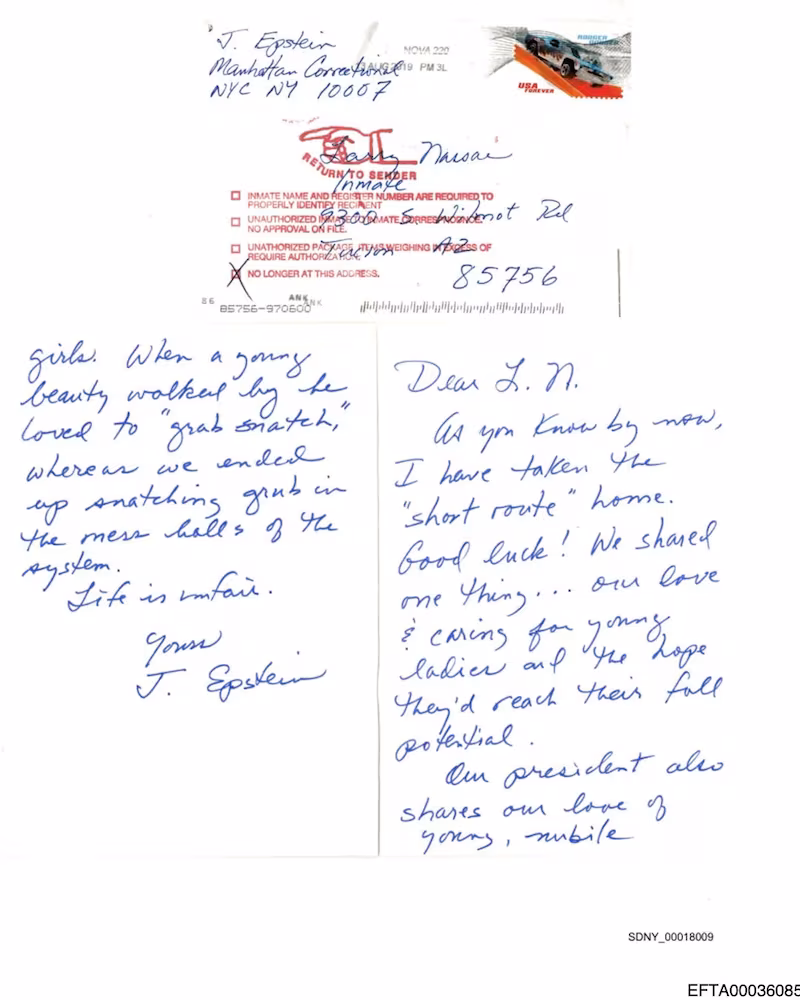 J. Epstein
Manhattan Correctional
NYC NY 10007
NOVA 220
AUG 2019 PM 3L
USA
FOREVER
RETURN TO SENDER
Larry Nassar
Inmate
9300 S. Wilmot Rd
Tucson AZ
85756
INMATE NAME AND REGISTER NUMBER ARE REQUIRED TO
PROPERLY IDENTIFY RECIPIENT
UNAUTHORIZED INMATE TO INMATE CORRESPONDENCE.
NO APPROVAL ON FILE.
UNAUTHORIZED PACKAGE, ITEMS WEIGHING IN EXCESS OF
REQUIRE AUTHORIZATION.
NO LONGER AT THIS ADDRESS.
86
ANK
ANK
85756-970600
Dear L. N.
As you know by now,
I have taken the
"short route" home.
Good luck! We shared
one thing... our love
& caring for young
ladies and the hope
they'd reach their full
potential.
Our president also
shares our love of
young, nubile
girls. When a young
beauty walked by he
loved to "grab snatch,"
whereas we ended
up snatching grub in
the mess halls of the
system.
Life is unfair.
Yours
J. Epstein
SDNY_00018009
EFTA00036085